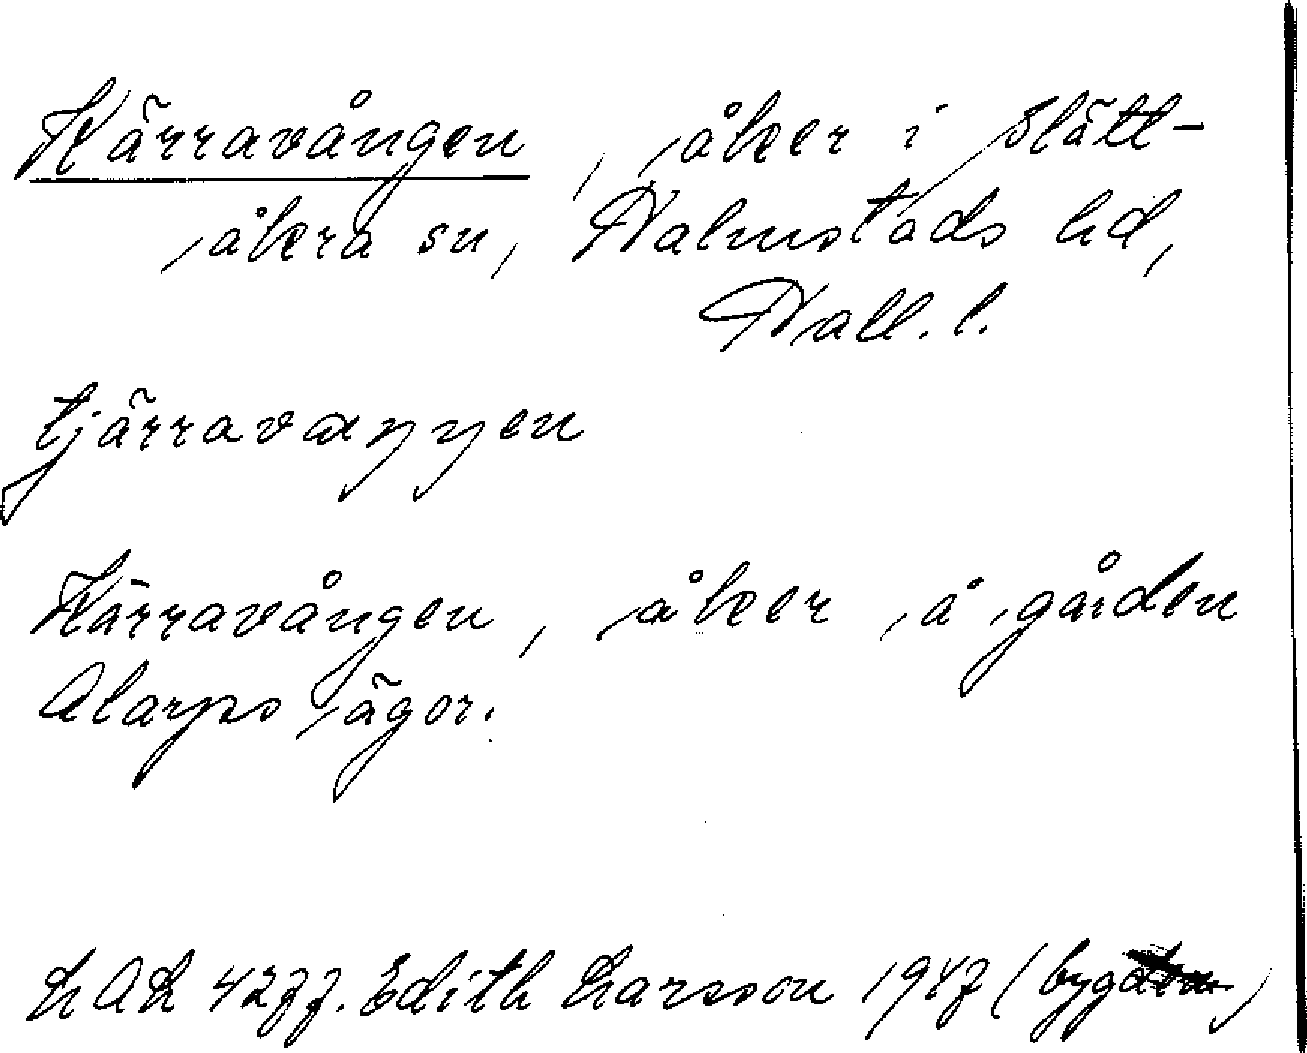 Kärravången, åker i Slätt-
åkra sn, Halmstads hd,
Hall. l.
tjärravaŋŋen
Kärravången, åker å gården
Alarps ägor.
LAL 4277. Edith Larsson 1947